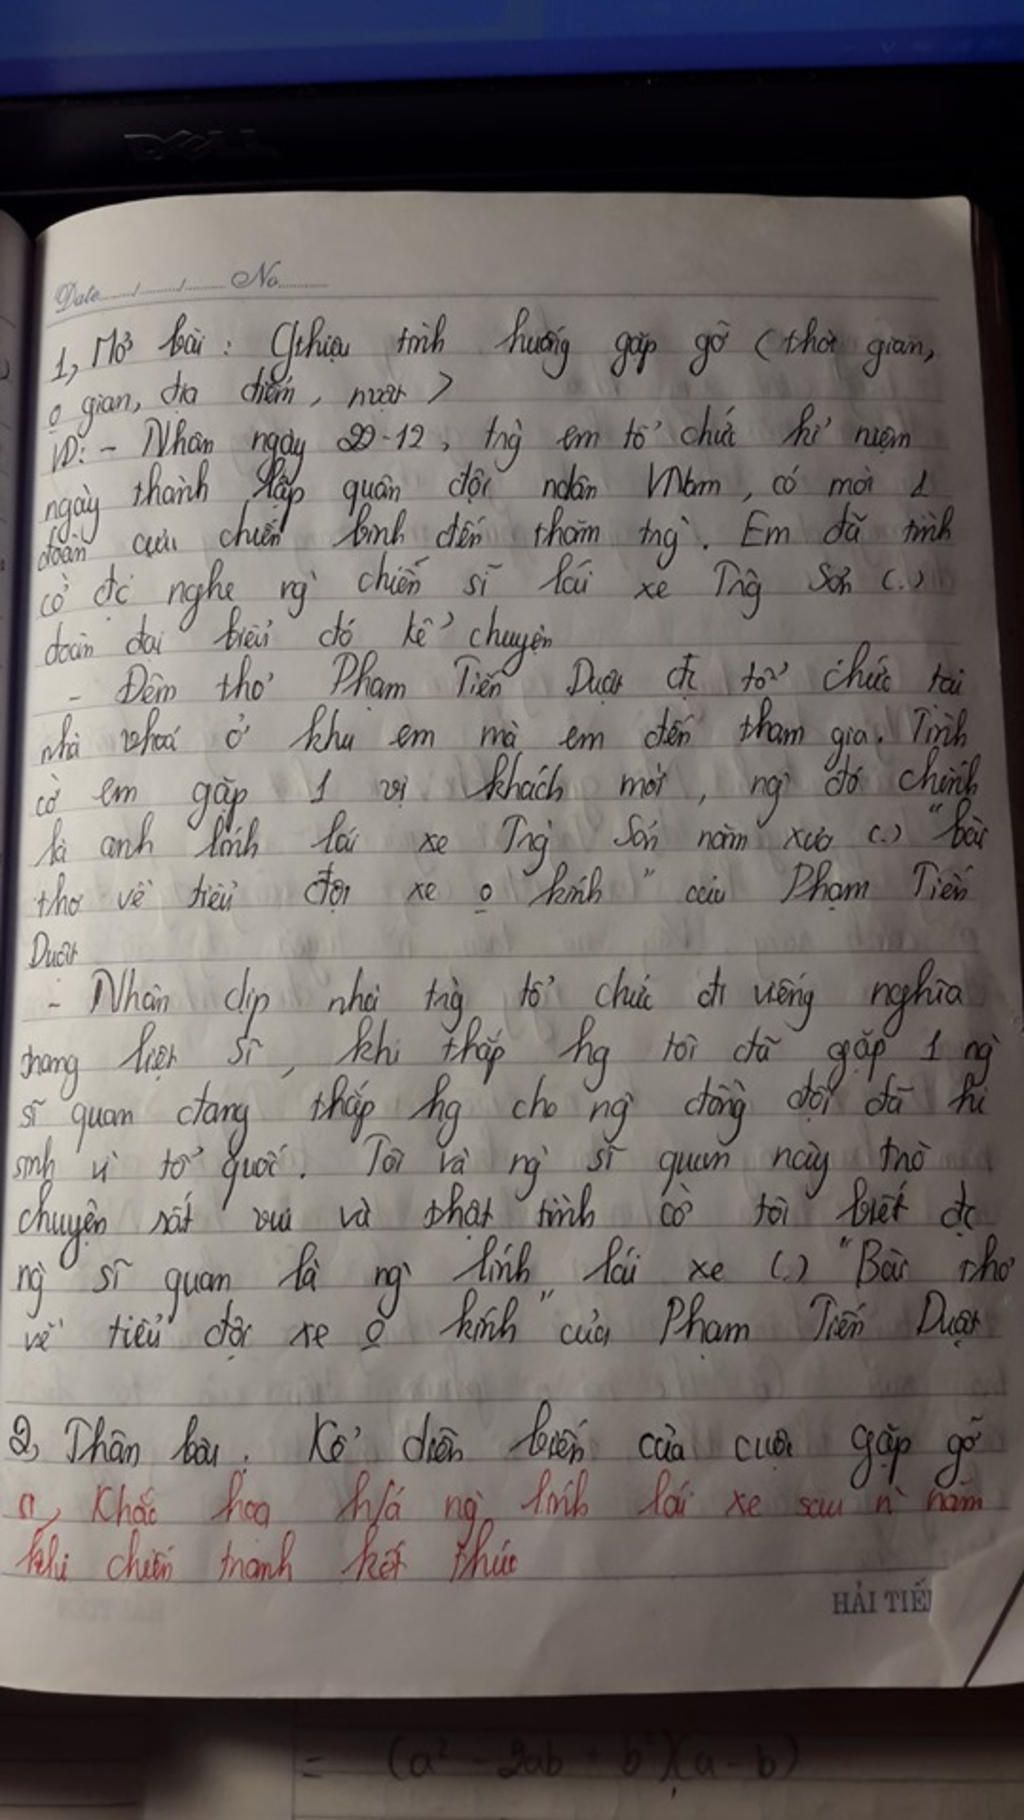 DELL
Date...../...../...... No..........
1, Mở bài : Gthiệu tình huống gặp gỡ (thời gian,
o gian, địa điểm, nvật )
VD: - Nhân ngày 22-12, trg em tổ chức kỉ niệm
ngày thành lập quân đội ndân VNam, có mời 1
đoàn cựu chiến binh đến thăm trg. Em đã tình
cờ đc nghe ng` chiến sĩ lái xe Trg Sơn (.)
đoàn đại biểu đó kể chuyện
- Đêm thơ Phạm Tiến Duật đc tổ chức tại
nhà vhoá ở khu em mà em đến tham gia. Tình
cờ em gặp 1 vị khách mời, ng` đó chính
là anh lính lái xe Trg Sơn năm xưa (.) "bài
thơ về tiểu đội xe o kính" của Phạm Tiến
Duật
- Nhân dịp nhà trg tổ chức đi viếng nghĩa
trang liệt sĩ, khi thắp hg tôi đã gặp 1 ng`
sĩ quan đang thắp hg cho ng` đồng đội đã hi
sinh vì tổ quốc. Tôi và ng` sĩ quan này trò
chuyện rất vui và thật tình cờ tôi biết đc
ng` sĩ quan là ng` lính lái xe (.) "Bài thơ
về tiểu đội xe o kính" của Phạm Tiến Duật
2, Thân bài. Kể diễn biến của cuộc gặp gỡ
a, Khắc hoạ h/á ng` lính lái xe sau n` năm
khi chiến tranh kết thúc
HẢI TIẾ
= (a² - 2ab + b²)(a - b)